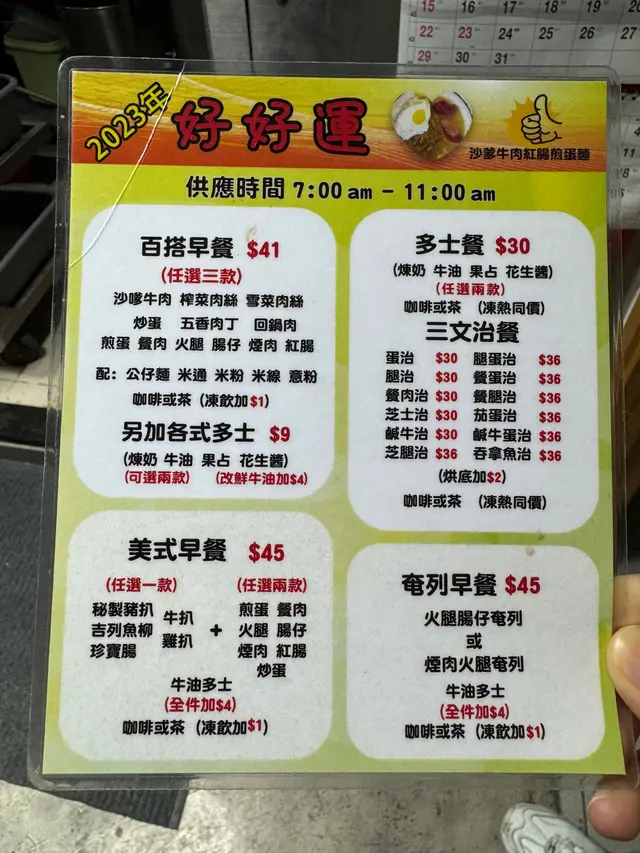 15 16 17 18 19 20
22 23 24 25 26 27
29 30 31
2023年
好好運
沙爹牛肉紅腸煎蛋麵
供應時間 7:00 am - 11:00 am
百搭早餐 $41
(任選三款)
沙嗲牛肉 榨菜肉絲 雪菜肉絲
炒蛋 五香肉丁 回鍋肉
煎蛋 餐肉 火腿 腸仔 煙肉 紅腸
配: 公仔麵 米通 米粉 米線 意粉
咖啡或茶 (凍飲加$1)
另加各式多士 $9
(煉奶 牛油 果占 花生醬)
(可選兩款) (改鮮牛油加$4)
多士餐 $30
(煉奶 牛油 果占 花生醬)
(任選兩款)
咖啡或茶 (凍熱同價)
三文治餐
蛋治 $30 腿蛋治 $36
腿治 $30 餐蛋治 $36
餐肉治 $30 餐腿治 $36
芝士治 $30 茄蛋治 $36
鹹牛治 $30 鹹牛蛋治 $36
芝腿治 $36 吞拿魚治 $36
(烘底加$2)
咖啡或茶 (凍熱同價)
美式早餐 $45
(任選一款) (任選兩款)
秘製豬扒 牛扒 煎蛋 餐肉
吉列魚柳 雞扒 + 火腿 腸仔
珍寶腸 煙肉 紅腸
炒蛋
牛油多士
(全件加$4)
咖啡或茶 (凍飲加$1)
奄列早餐 $45
火腿腸仔奄列
或
煙肉火腿奄列
牛油多士
(全件加$4)
咖啡或茶 (凍飲加$1)